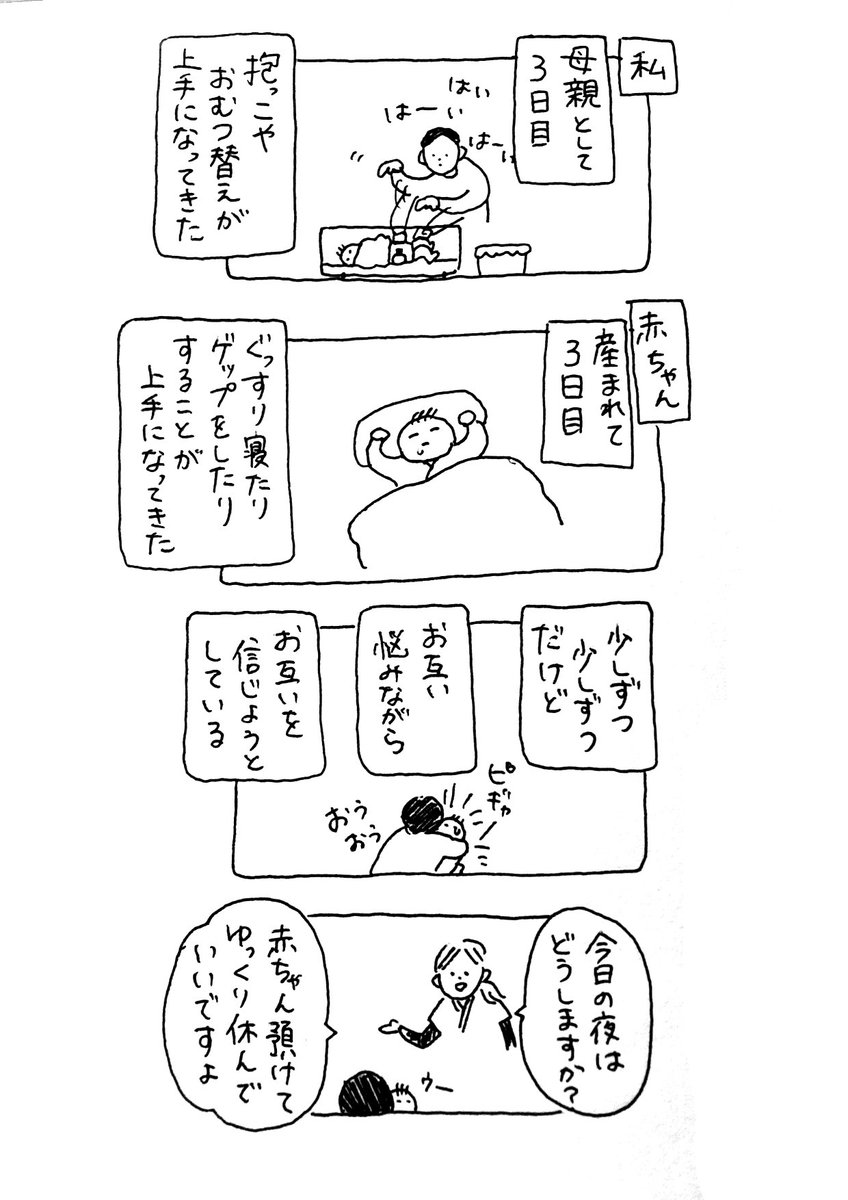 私
母親として
3日目
はい
はーい
はーい
抱っこや
おむつ替えが
上手になってきた
赤ちゃん
産まれて
3日目
ぐっすり寝たり
ゲップをしたり
することが
上手になってきた
少しずつ
少しずつ
だけど
お互い
悩みながら
お互いを
信じようと
している
ピギャ
おぅ
おぅ
今日の夜は
どうしますか?
赤ちゃん預けて
ゆっくり休んで
いいですよ
ウー